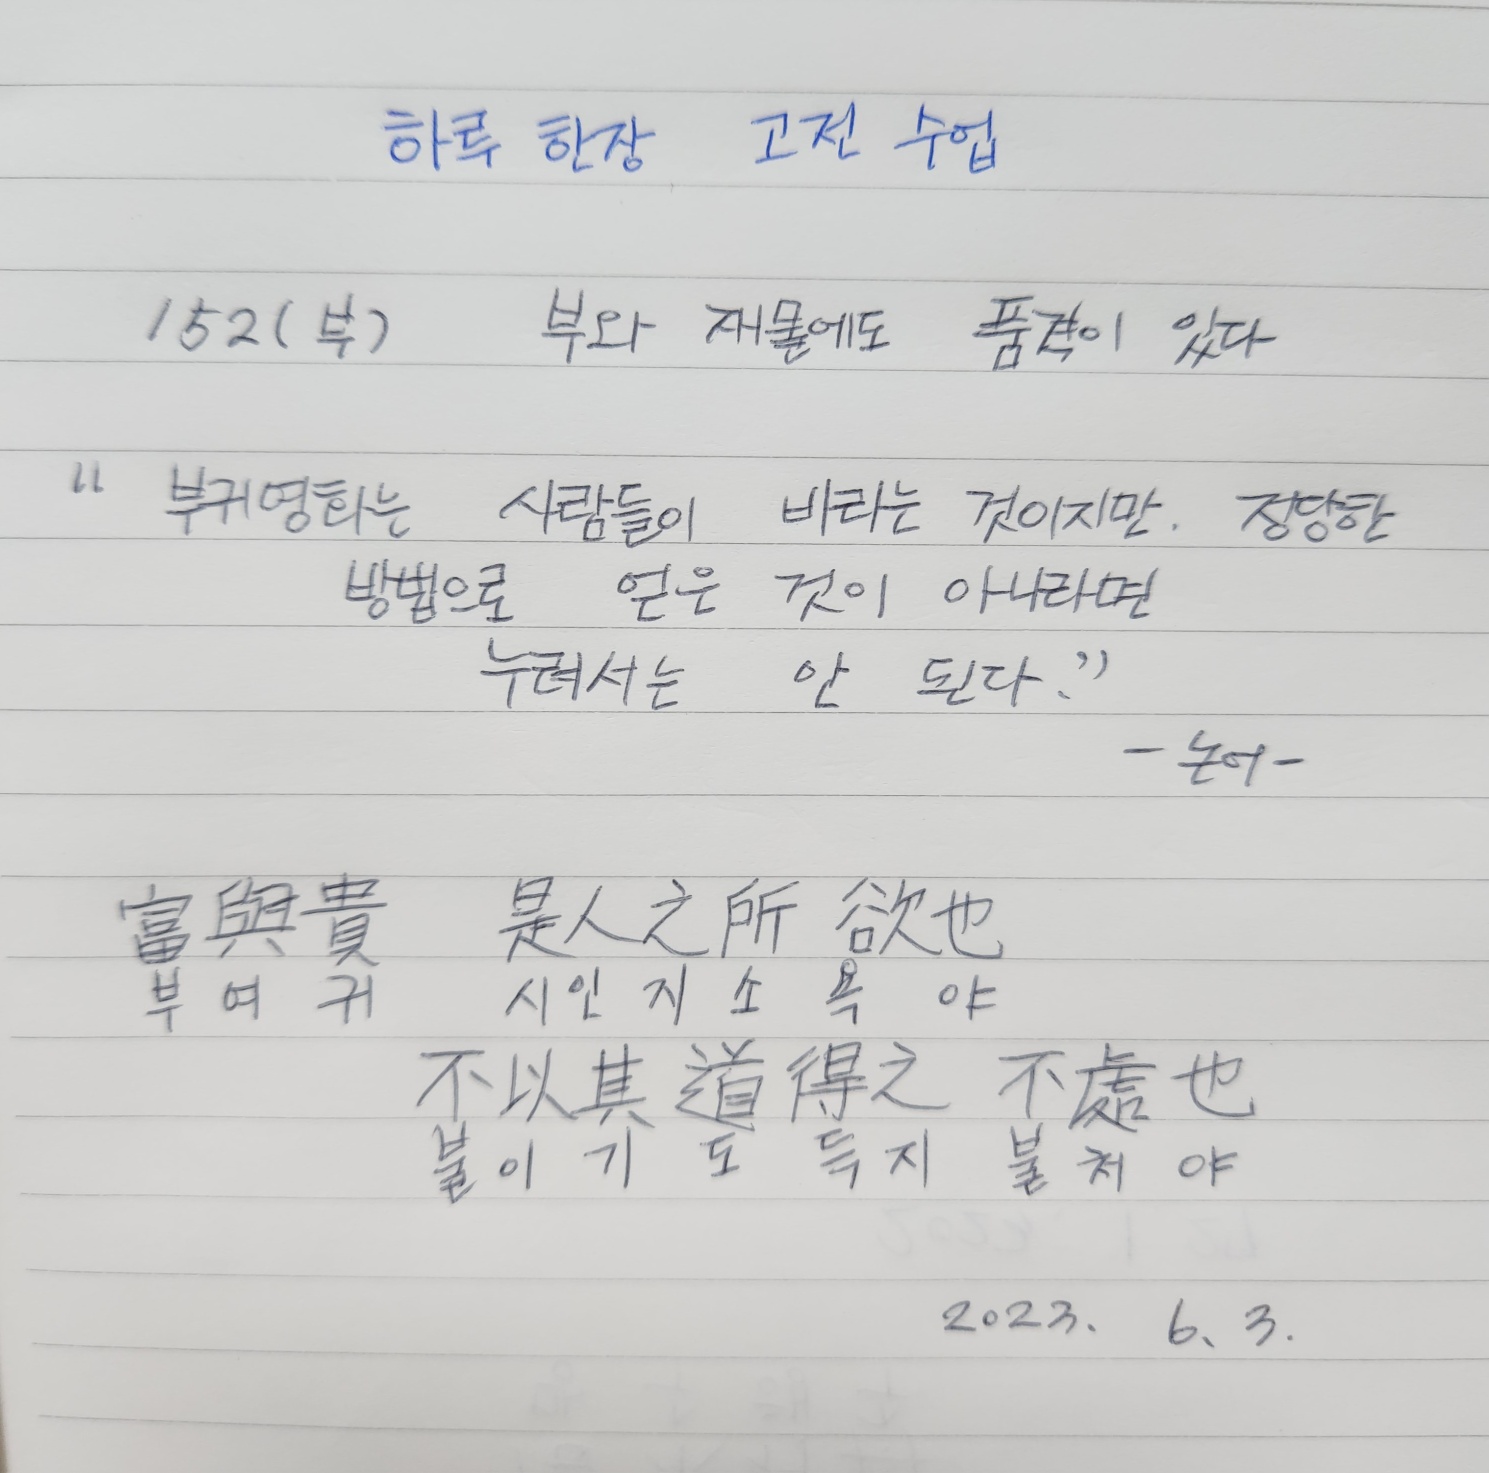 하루 한장 고전 수업
152(부) 부와 재물에도 품격이 있다
" 부귀영화는 사람들이 바라는 것이지만. 정당한
방법으로 얻은 것이 아니라면
누려서는 안 된다."
- 논어 -
富與貴 是人之所欲也
부여귀 시인지소욕야
不以其道得之 不處也
불이기도득지 불처야
2023. 6. 3.